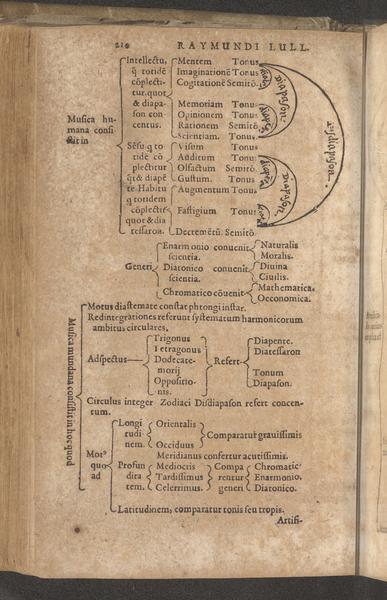 210 RAYMUNDI LULL.
Intellectu, Mentem Tonus
q̃ totidē Imaginationē Tonus
cōplecti- Cogitationē Semitō.
tur, quot
& diapa- Memoriam Tonus
son con- Opinionem Tonus
centus. Rationem Semitō.
Scientiam. Tonus
Musica hu-
mana consi-
stit in
Sēsu, q to Visum Tonus
tidē cō Auditum Tonus
plectitur Olfactum Semitō.
q̃t & diapē Gustum. Tonus
te. Habitu Augmentum Tonus
q totidem
cōplectit Fastigium Tonus
quot & dia
tessaron. Decremētū. Semitō
diapason.
Diapason.
Disdiapason.
Generi
Enarmonio conuenit Naturalis
scientia. Moralis.
Diatonico conuenit Diuina
scientia. Ciuilis.
Chromatico cōuenit Mathematica.
Oeconomica.
Musica mundana consistit in hoc quod
Motus diastemate constat phtongi instar.
Redintegrationes referunt systematum harmonicorum
ambitus circulares,
Adspectus
Trigonus
Tetragonus
Dodecate-
morij
Oppositio-
nis.
Refert
Diapente.
Diatessaron
Tonum
Diapason.
Circulus integer Zodiaci Disdiapason refert concen-
tum.
Mot⁹
quo
ad
Longi
tudi
nem.
Orientalis
Occiduus
Comparatur grauissimis
Meridianus confertur acutissimis.
Profun Mediocris Compa Chromatic⁹
dita Tardissimus rentur Enarmonio.
tem. Celerrimus. generi Diatonico.
Latitudinem, comparatur tonis seu tropis.
Artifi-